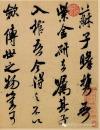 蘇子瞻攜吾
紫金研去嘱其子
入棺吾今得之不以
斂傳世之物豈可